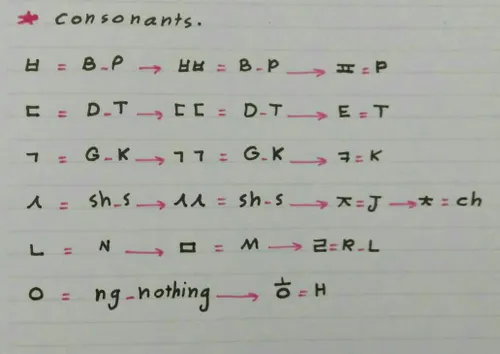 * consonants.
ㅂ = B_P → ㅂㅂ = B_P → ㅍ = P
ㄷ = D_T → ㄷㄷ = D_T → ㅌ = T
ㄱ = G_K → ㄱㄱ = G_K → ㅋ = K
ㅅ = sh_s → ㅅㅅ = sh_s → ㅈ = J → ㅊ = ch
ㄴ = N → ㅁ = M → ㄹ = R_L
ㅇ = ng_nothing → ㅎ = H